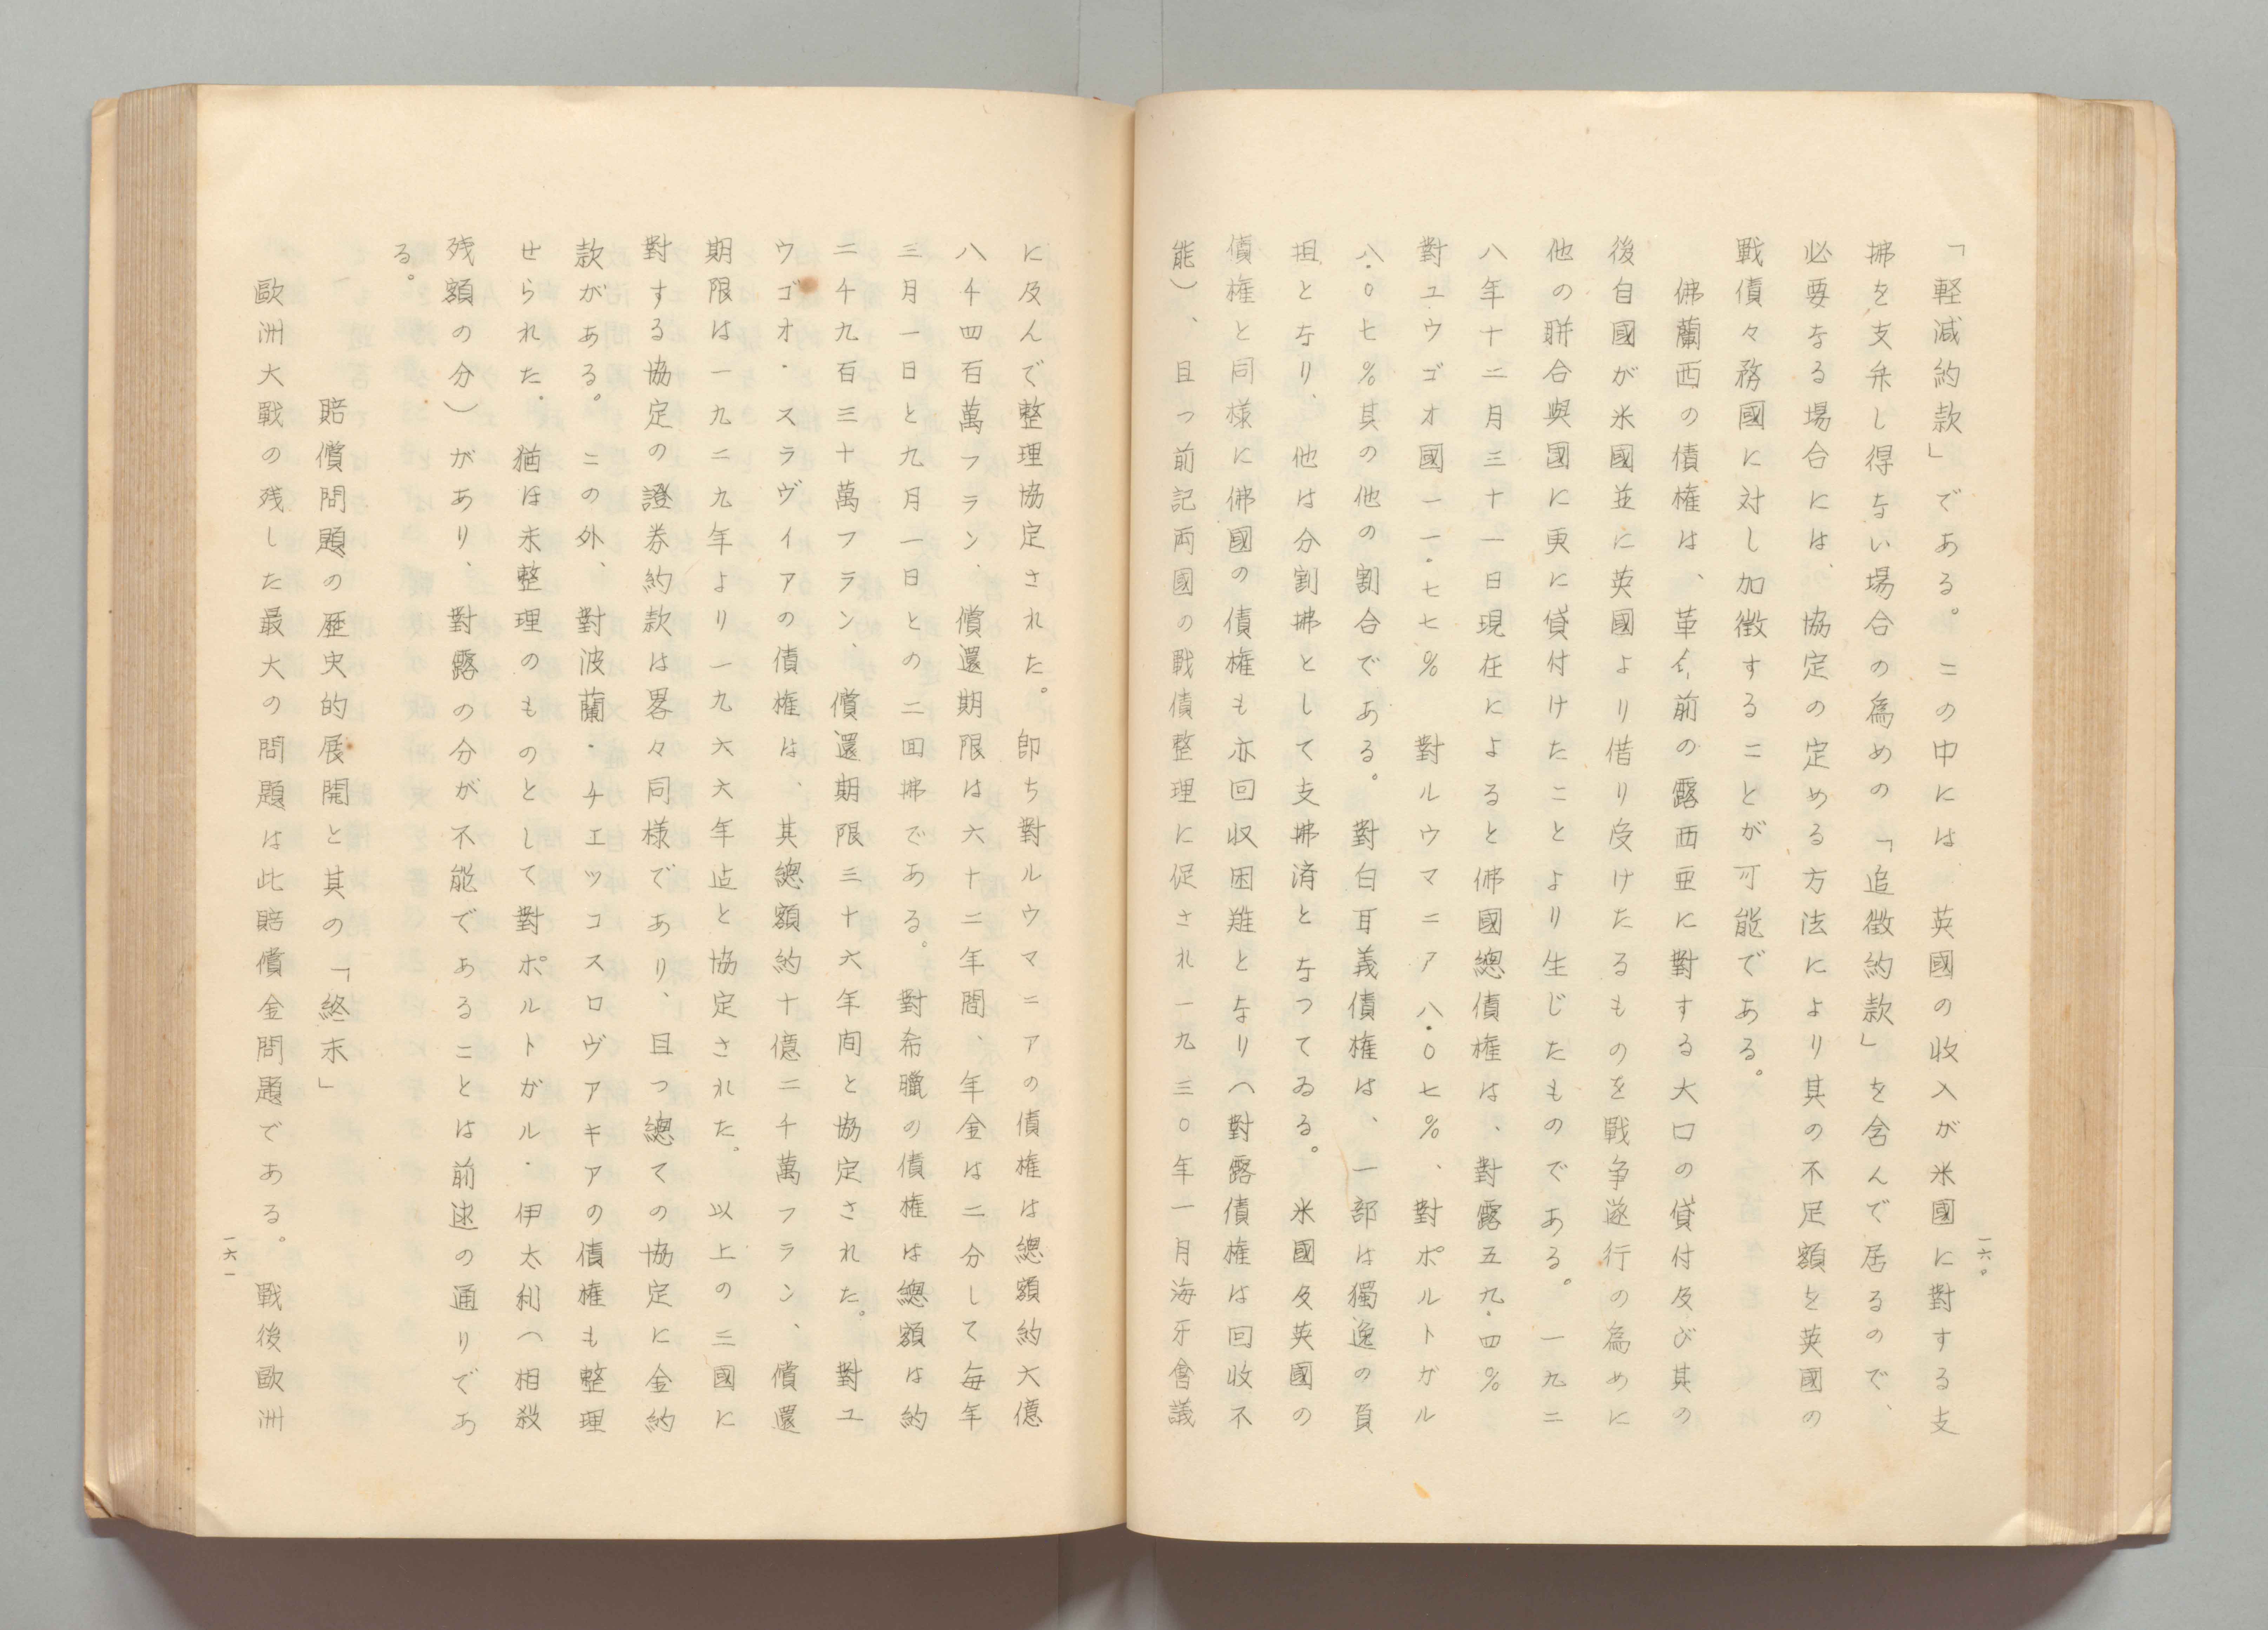 一六〇
「軽減約款」である。この中には、英國の收入が米國に對する支
拂を支弁し得ない場合の為めの「追徴約款」を含んで居るので、
必要なる場合には、協定の定める方法により其の不足額を英國の
戰債々務國に対し加徴することが可能である。
佛蘭西の債権は、革命前の露西亜に對する大口の貸付及び其の
後自國が米國並に英國より借り受けたるものを戰争遂行の為めに
他の聯合與國に更に貸付けたことより生じたものである。一九二
八年十二月三十一日現在によると佛國總債権は、對露五九・四%
對ユウゴオ國一一・七七%　對ルウマニア八・〇七%、對ポルトガル
八・〇七%其の他の割合である。對白耳義債権は、一部は獨逸の負
担となり、他は分割拂として支拂済となつてゐる。米國及英國の
債権と同様に佛國の債権も亦回収困難となり（對露債権は回收不
能）、且つ前記両國の戰債整理に促され一九三〇年一月海牙會議
に及んで整理協定された。卽ち對ルウマニアの債権は總額約六億
八千四百萬フラン、償還期限は六十二年間、年金は二分して毎年
三月一日と九月一日との二回拂である。對希臘の債権は總額は約
二千九百三十萬フラン、償還期限三十六年間と協定された。對ユ
ウゴオ・スラヴイアの債権は、其總額約十億二千萬フラン、償還
期限は一九二九年より一九六六年迄と協定された。以上の三國に
對する協定の證券約款は畧々同様であり、且つ總ての協定に金約
款がある。この外、對波蘭・チエツコスロヴアキアの債権も整理
せられた。猶ほ未整理のものとして對ポルトガル・伊太利（相殺
残額の分）があり、對露の分が不能であることは前述の通りであ
る。
賠償問題の歴史的展開と其の「終末」
歐洲大戰の残した最大の問題は此賠償金問題である。戰後歐洲
一六一